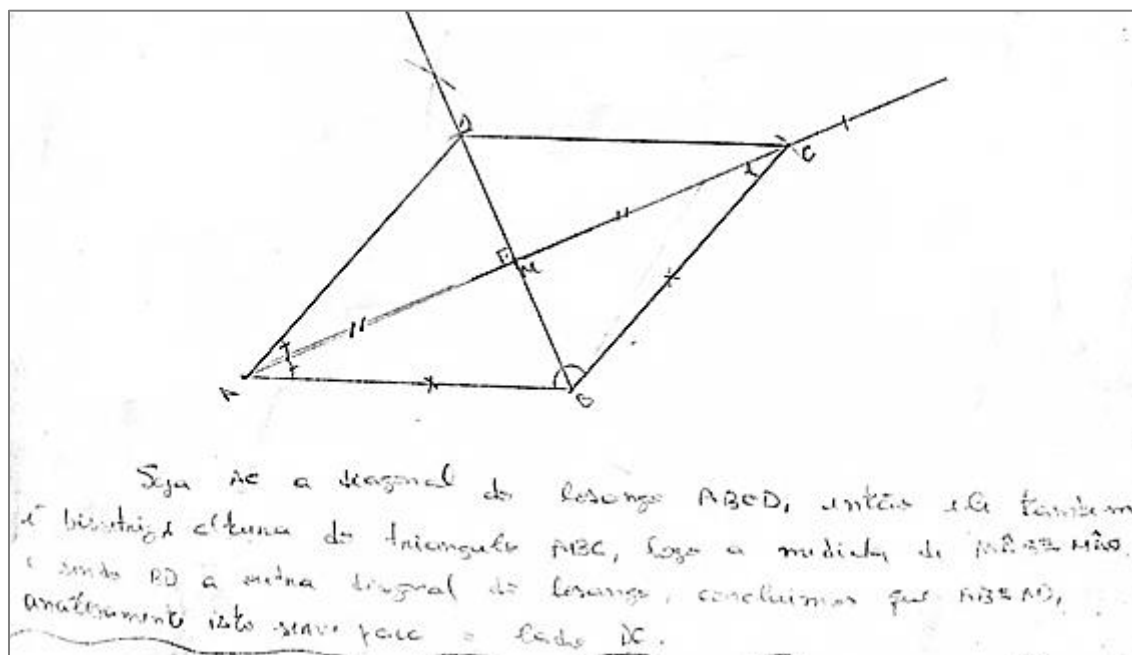 D
C
M
A
B
Seja AC a diagonal do losango ABCD, então ela também
é bisetriz e altura do triangulo ABC, logo a medida de
e sendo BD a outra diagonal do losango, concluimos que AB≅AD,
analogamente isto serve para o lado DC.